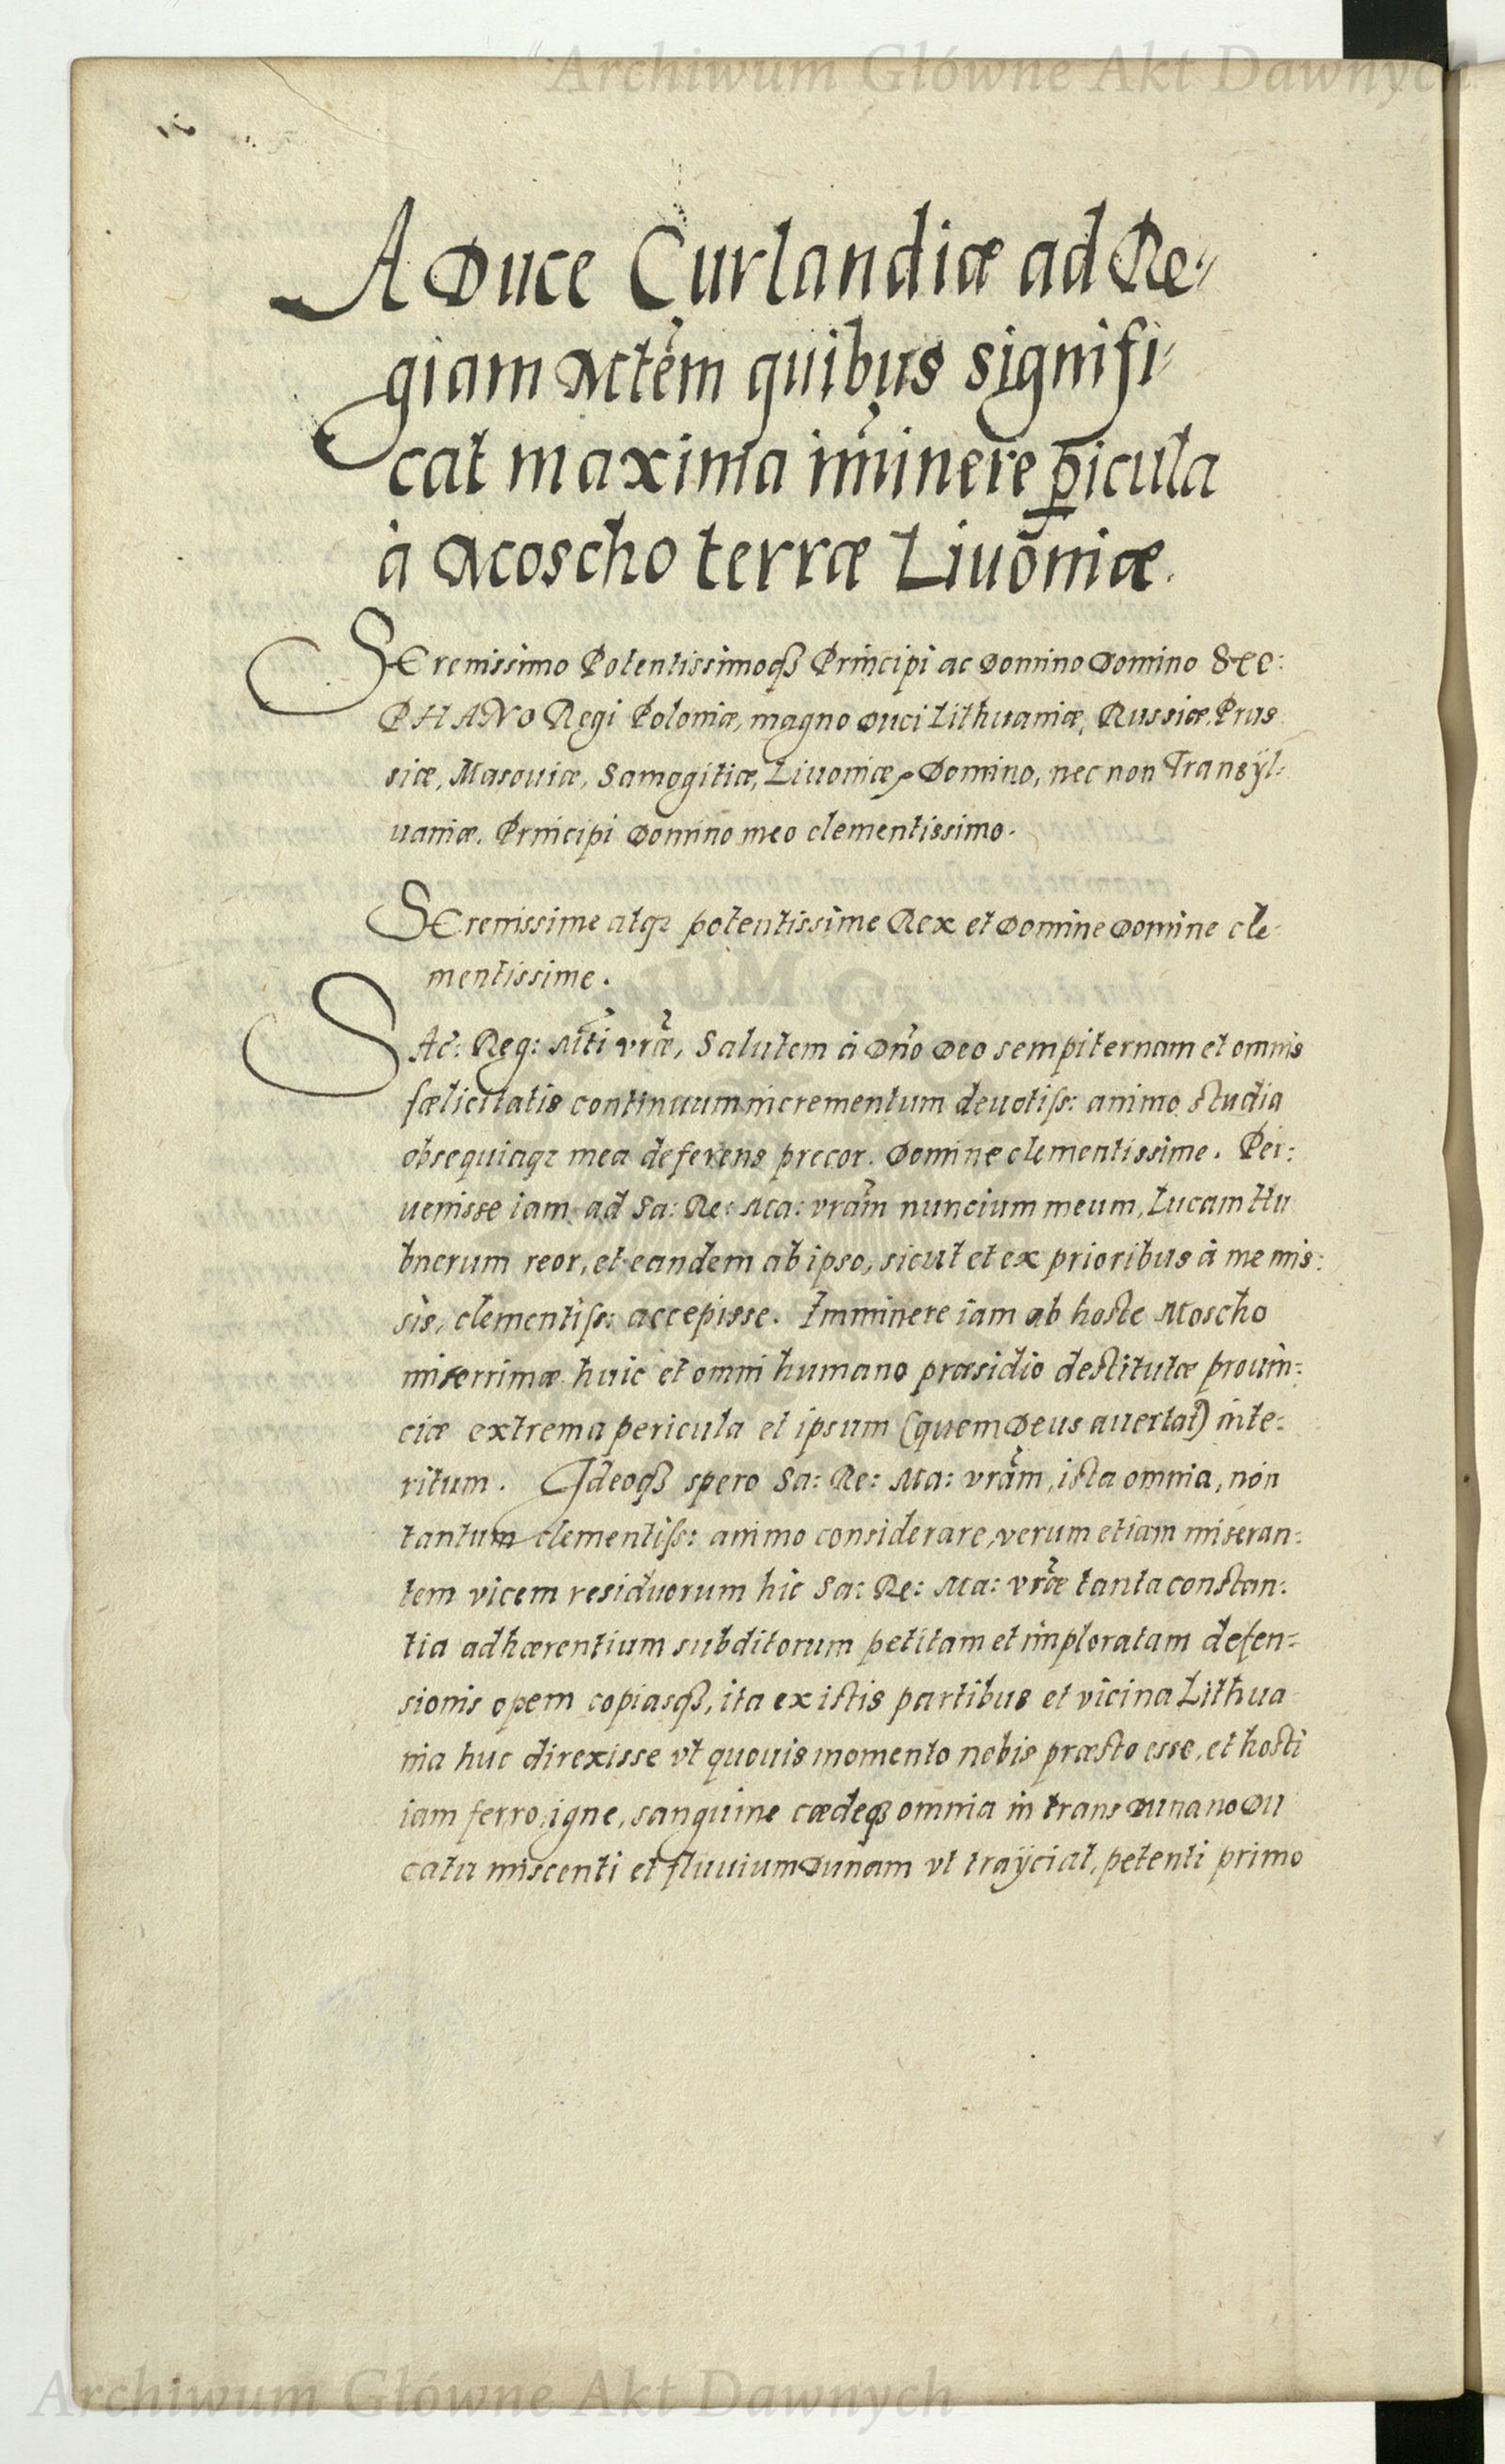 Archiwum Główne Akt Dawnych
A Duce Curlandiæ ad Re-
giam Mtem quibus signifi-
cat maxima iminere p̲icula
à Moscho terræ Liuoniæ.
SErenissimo Potentissimoq3 Principi ac Domino Domino STE:
PHANO Regi Poloniæ, magno Duci Lithuaniæ, Russiæ, Prus
siæ, Masouiæ, Samogitiæ, Liuoniæq Domino, nec non Transÿl:
uaniæ. Principi Domino meo clementissimo.
SErenissime atq3 potentissime Rex et Domine Domine cle-
mentissime.
SAc: Reg: Mti vræ, Salutem à Dno Deo sempiternam et omnis
fælicitatis continuum incrementum deuotiss: animo studia
obsequiaq3 mea deferens precor. Domine clementissime. Per:
uenisse iam ad Sa: Re: Ma: vram nuncium meum, Lucam Hu
bnerum reor, et eandem ab ipso, sicut et ex prioribus à me mis:
sis, clementiss: accepisse. Imminere iam ab hoste Moscho
miserrimæ huic et omni humano præsidio destitutæ prouin:
ciæ extrema pericula et ipsum (quem Deus auertat) inte:
ritum. Ideoq3 spero Sa: Re: Ma: vram, ista omnia, non
tantum clementiss: animo considerare, verum etiam miseran:
tem vicem residuorum hic Sa: Re: Ma: vræ tanta constan:
tia adhærentium subditorum petitam et imploratam defen=
sionis opem copiasq3, ita ex istis partibus et vicina Lithua
nia huc direxisse vt quouis momento nobis præsto esse, et hosti
iam ferro, igne, sanguine cædeq3 omnia in trans Dunano Du
catu miscenti et fluuium Dunam vt traÿciat, petenti primo
Archiwum Główne Akt Dawnych